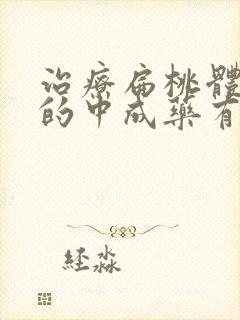 治療扁桃體
的中成藥有
経淼